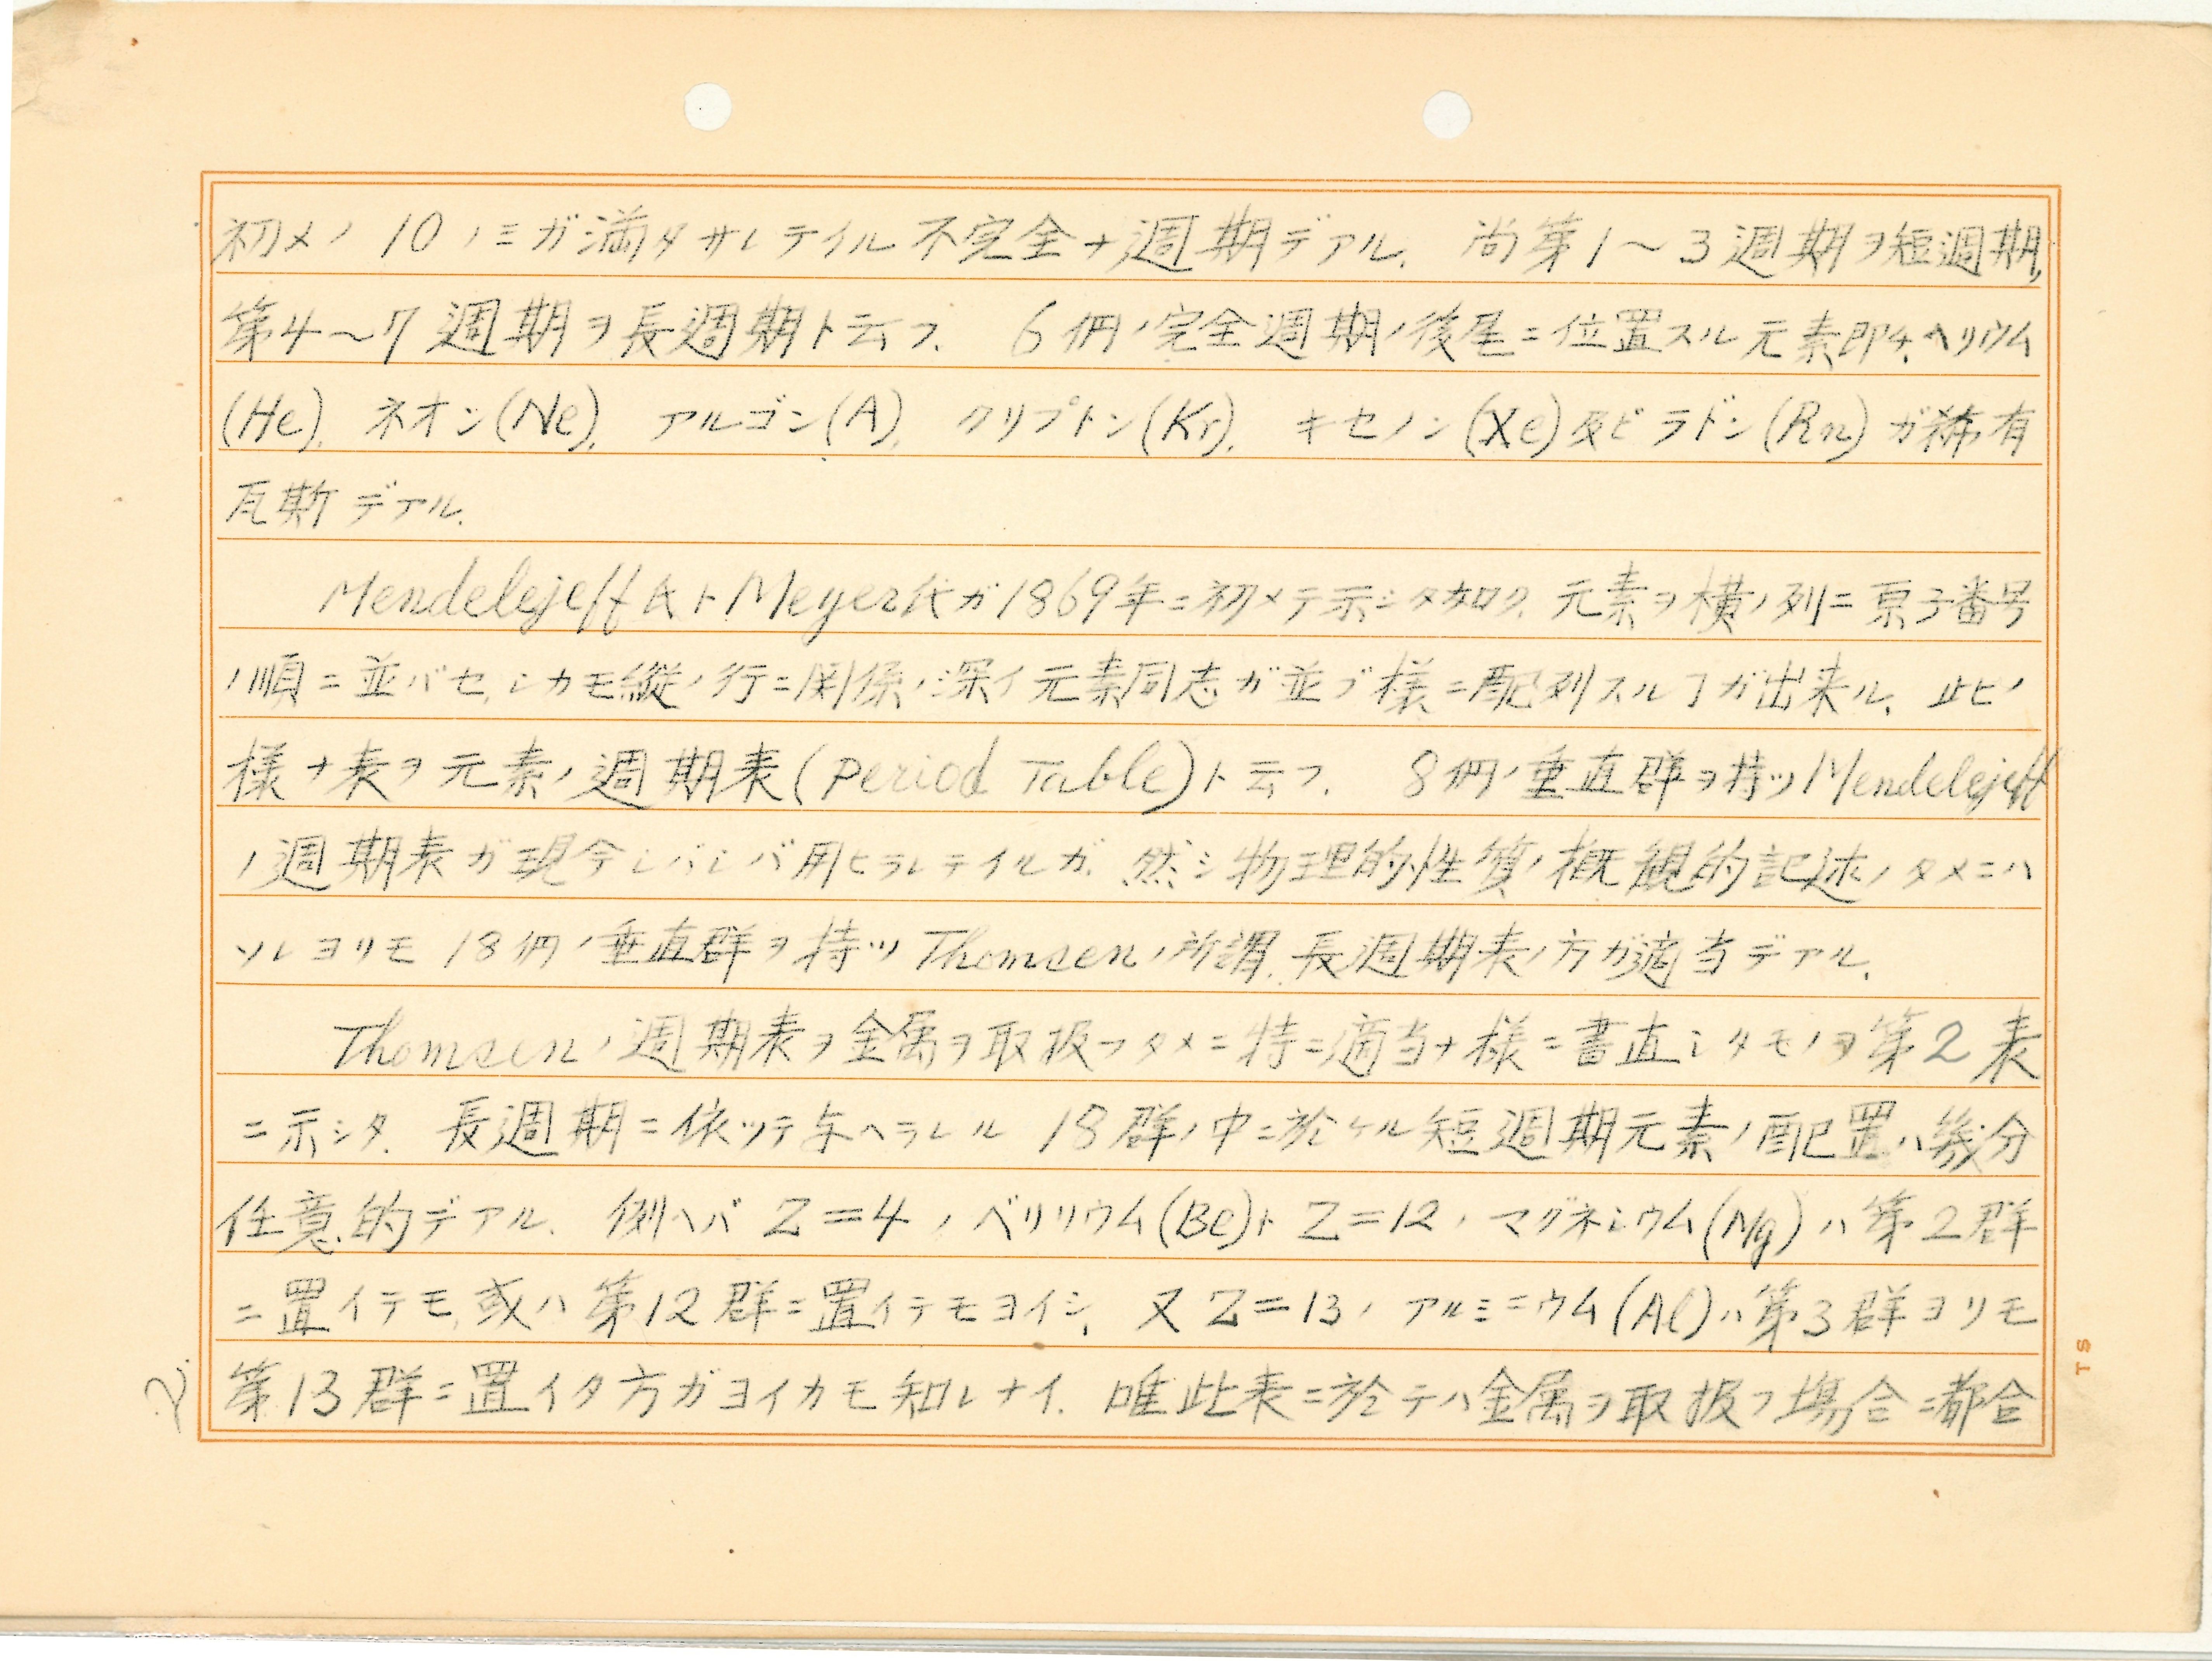 初メノ 10ノミガ満タサレテイル不完全ナ週期デアル. 尚第1～3週期ヲ短週期,
第4～7週期ヲ長週期ト云フ. 6個ノ完全週期ノ後尾ニ位置スル元素即チ,ヘリウム
(He), ネオン(Ne), アルゴン(A), クリプトン(Kr), キセノン(Xe)及ビラドン(Rn)ガ稀有
瓦斯デアル.
Mendelejeff氏トMeyer氏ガ1869年ニ初メテ示シタ如ク, 元素ヲ横ノ列ニ原子番号
ノ順ニ並バセ,シカモ縦ノ行ニ関係ノ深イ元素同志ガ並ブ様ニ配列スルヿガ出来ル. 此ノ
様ナ表ヲ元素ノ週期表(Period Table)ト云フ. 8個ノ垂直群ヲ持ツMendelejeff
ノ週期表ガ現今シバシバ用ヒラレテイルガ, 然シ物理的性質ノ概観的記述ノタメニハ
ソレヨリモ 18個ノ垂直群ヲ持ツ Thomsenノ所謂, 長週期表ノ方ガ適当デアル.
Thomsenノ週期表ヲ金属ヲ取扱フタメニ特ニ適当ナ様ニ書直シタモノヲ第2表
ニ示シタ. 長週期ニ依ツテ与ヘラレル 18群ノ中ニ於ケル短週期元素ノ配置ハ幾分
任意的デアル. 例ヘバ Z=4, ベリリウム(Be)ト Z=12, マグネシウム(Mg)ハ第2群
ニ置イテモ,或ハ第12群ニ置イテモヨイシ, 又Z=13, アルミニウム(Al)ハ第3群ヨリモ
第13群ニ置イタ方ガヨイカモ知レナイ. 唯此表ニ於テハ金属ヲ取扱フ場合ニ都合
2.
TS